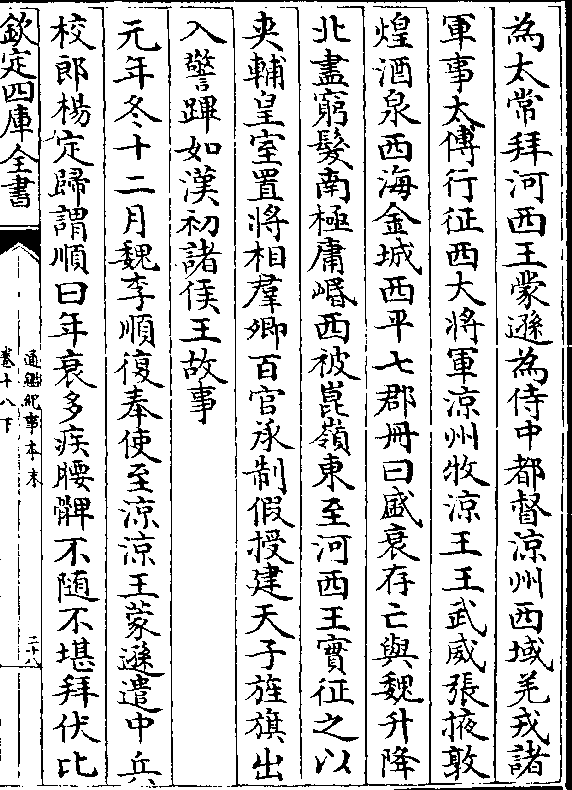 為太常拜河西王蒙遜為侍中都督涼州西域羌戎諸
軍事太傅行征西大將軍涼州牧涼王王武威張掖敦
煌酒泉西海金城西平七郡冊曰盛衰存亡與魏升降
北盡窮髮南極庸㟭西被崑嶺東至河西王實征之以
夾輔皇室置將相羣卿百官承制假授建天子旌旗出
入警蹕如漢初諸侯王故事
元年冬十二月魏李順復奉使至涼涼王蒙遜遣中兵
校郎楊定歸謂順曰年衰多疾腰髀不随不堪拜伏比
欽定四庫全書
通鑑紀事本末
卷十八下
二十八